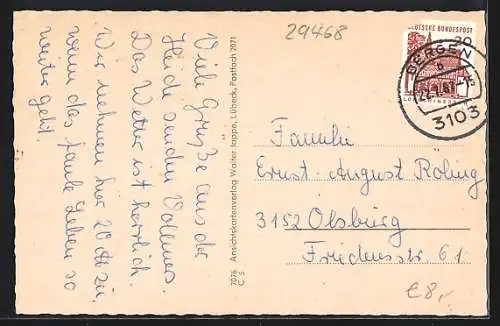 29468
Viele Grüße aus der
Heide senden Vollmers.
Das Wetter ist herrlich.
Wir nehmen hier 20 Pf zu,
wenn das faule Leben so
weiter geht.
7076 Ansichtskartenverlag Walter Jappe, Lübeck, Postfach 2071
C S
DEUTSCHE BUNDESPOST
20
BERGEN
3103
Familie
Ernst-August Röling
3152 Olsburg
Friedensstr. 61
€8,-